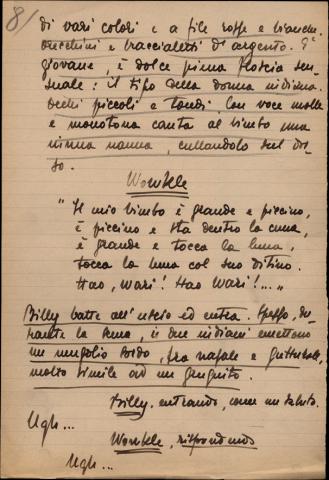 8/
di vari colori e a file rosse e bianche.
orecchini e braccialetti d'argento. È
giovane, è dolce piena floscia sen-
suale: il tipo della donna indiana.
Occhi piccoli e tondi. Con voce molle
e monotona canta al bimbo una
ninna nanna, cullandolo sul dor-
so.
Wowkle
"Il mio bimbo è grande e piccino,
è piccino e sta dentro la cuna,
è grande e tocca la luna,
tocca la luna col suo ditino.
Hao, Wari! Hao Wari!..."
Billy batte all'uscio ed entra. Spesso, du-
rante la scena, i due indiani emettono
un mugolio sordo, fra nasale e gutturale,
molto simile ad un grugnito.
Billy, entrando, come un saluto.
Ugh...
Wowkle, rispondendo
Ugh...